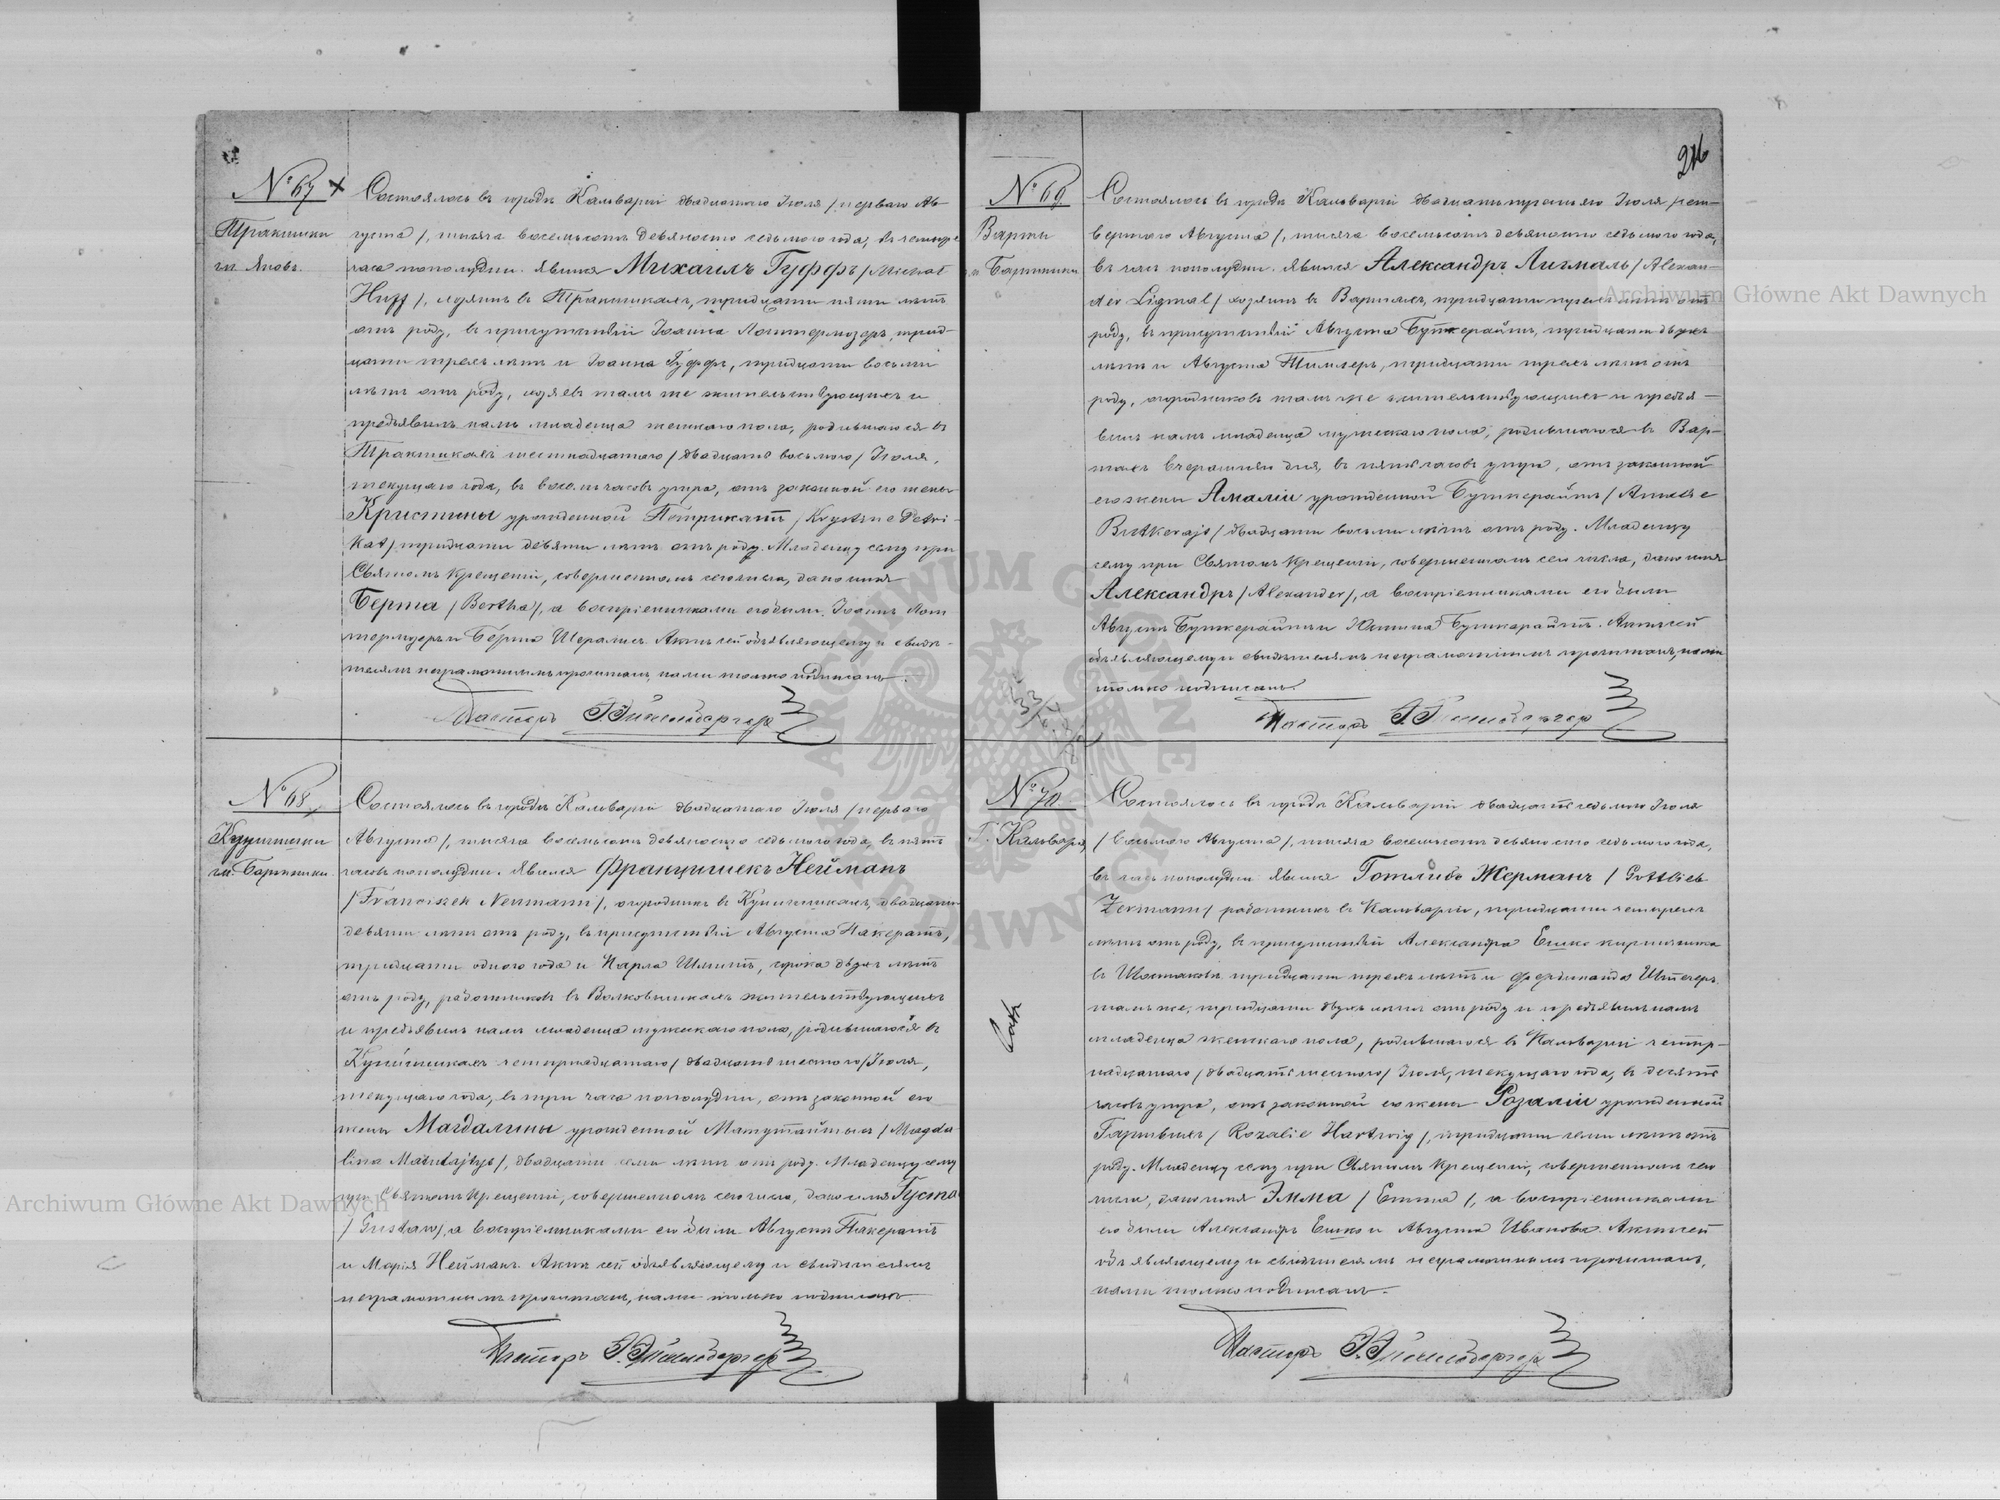 № 67
Тракишки
гм. Яновъ.
Состоялось въ городѣ Кальваріи двадцатаго Іюля /перваго Ав-
густа/, тысяча восемьсотъ девяносто седьмого года, въ четыре
часа пополудни. Явился Михаилъ Гуффъ /Michał
Huff/, въ Тракишкахъ, тридцати пяти лѣтъ
отъ роду, въ присутствіи Іоанна трид-
цати трехъ лѣтъ и Іоанна Гуффъ, тридцати восьми
лѣтъ отъ роду, тамъ же жительствующихъ и
предъявилъ намъ младенца женскаго пола, родившагося въ
Тракишкахъ шестнадцатаго /двадцать восьмого/ Іюля,
текущаго года, въ восемь часовъ утра, отъ законной его жены
Кристины урожденной Петрикатъ /Krystine Petri-
kat/ тридцати девяти лѣтъ отъ роду. Младенцу сему при
Святомъ Крещеніи, совершенномъ сего числа, дано имя
Берта /Bertha/, а воспріемниками его были Іоаннъ
и Берта Актъ сей объявляющему и свидѣ-
телямъ неграмотнымъ прочитанъ, нами только подписанъ.
Пасторъ
№ 68
гм. Бартники
Состоялось въ городѣ Кальваріи двадцатаго Іюля /перваго
Августа/, тысяча восемьсотъ девяносто седьмого года, въ пять
часовъ пополудни. Явился Францишекъ Нейманъ
/Franciszek Neumann/, огородникъ въ двадцати
девяти лѣтъ отъ роду, въ присутствіи Августа Пакератъ,
тридцати одного года и Карла Шмитъ, сорока двухъ лѣтъ
отъ роду, работниковъ въ Волковишкахъ жительствующихъ
и предъявилъ намъ младенца мужскаго пола, родившагося въ
четырнадцатаго /двадцать шестого/ Іюля,
текущаго года, въ три часа пополудни, отъ законной его
жены Магдалины урожденной Матутайтысъ /Magda
lina Matutajtys/, двадцати семи лѣтъ отъ роду. Младенцу сему
при Святомъ Крещеніи, совершенномъ сего числа, дано имя Густа
/Gustaw/, а воспріемниками его были Августъ Пакератъ
и Марія Нейманъ. Актъ сей объявляющему и свидѣтелямъ
неграмотнымъ прочитанъ, нами только подписанъ.
Пасторъ
216
№ 69
Варты
Бартники
Состоялось въ городѣ Кальваріи двадцать третьяго Іюля /чет-
вертаго Августа/, тысяча восемьсотъ девяносто седьмого года,
въ часъ пополудни. Явился Александръ Лигмалъ /Alexan-
der Ligmal/ хозяинъ въ Вартахъ, тридцати трехъ лѣтъ отъ
роду, въ присутствіи Августа Буткерайтъ, тридцати двухъ
лѣтъ и Августа тридцати трехъ лѣтъ отъ
роду, огородниковъ тамъ же жительствующихъ и предъя-
вилъ намъ младенца мужскаго пола, родившагося въ Вар-
тахъ вчерашняго дня, въ пять часовъ утра, отъ законной
его жены Амаліи урожденной Буткерайтъ
двадцати восьми лѣтъ отъ роду. Младенцу
сему при Святомъ Крещеніи, совершенномъ сего числа, дано имя
Александръ /Alexander/, а воспріемниками его были
Августъ Буткерайтъ и Юстина Буткарайтъ. Актъ сей
объявляющему и свидѣтелямъ неграмотнымъ прочитанъ, нами
только подписанъ.
Пасторъ
№ 70
Г. Кальварія
Состоялось въ городѣ Кальваріи двадцать седьмого Іюля
/восьмого Августа/, тысяча восемьсотъ девяносто седьмого года,
въ часъ пополудни. Явился Готлибъ Жерманъ /Gottlieb
Żermann/ работникъ въ Кальваріи, тридцати четырехъ
лѣтъ отъ роду, въ присутствіи Александра Ешко
въ тридцати трехъ лѣтъ и Фердинанда
тамъ же, тридцати двухъ лѣтъ отъ роду и предъявилъ намъ
младенца женскаго пола, родившагося въ Кальваріи четыр-
надцатаго /двадцать шестого/ Іюля, текущаго года, въ десять
часовъ утра, отъ законной его жены Розаліи урожденной
Гартвигъ /Rozalie Hartwig/, тридцати семи лѣтъ отъ
роду. Младенцу сему при Святомъ Крещеніи, совершенномъ сего
числа, дано имя Эмма /Emma/, а воспріемниками
его были Александръ Ешко и Августа Иванова. Актъ сей
объявляющему и свидѣтелямъ неграмотнымъ прочитанъ,
нами только подписанъ.
Пасторъ
Archiwum Główne Akt Dawnych
Archiwum Główne Akt Dawnych
ARCHIWUM GŁÓWNE AKT DAWNYCH